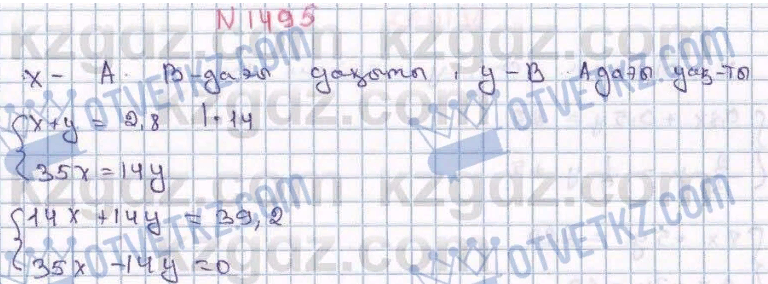 N 1495
x - A. B-дағы уақыты, y - B. Адағы уақ-ты
x+y = 2,8 | · 14
35x = 14y
14x + 14y = 39,2
35x - 14y = 0
kzgdz.com
OTVETKZ.COM